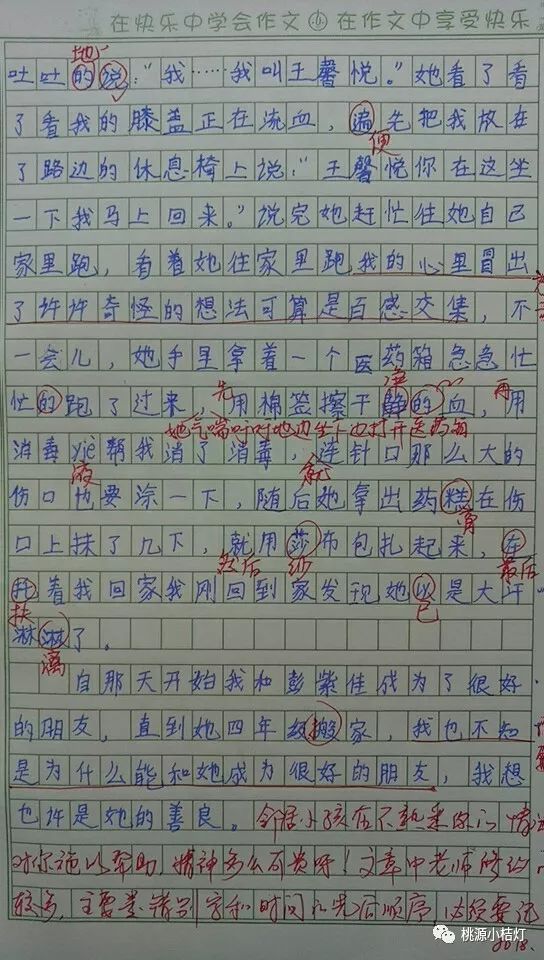 在快乐中学会作文 在作文中享受快乐
地
吐吐的说："我……我叫王馨悦。"她看了看
了看我的膝盖正在流血，遍先把我放在
便
了路边的休息椅上说："王馨悦你在这坐
一下我马上回来。"说完她赶忙往她自己
家里跑，看着她往家里跑我的心里冒出
了许许奇怪的想法可算是百感交集，不
一会儿，她手里拿着一个医药箱急急忙
忙的跑了过来，先用棉签擦干静的血，再用
净
她气喘吁吁地边坐下边打开医药箱
消毒yiè帮我消了消毒，连针口那么大的
液 就
伤口也要涂一下，随后她拿出药糕在伤
膏
口上抹了几下，就用莎布包扎起来，在
然后 纱 最后
托着我回家我刚回到家发现她以是大汗
扶 已
淋淋了。
漓
自那天开始我和彭紫佳成为了很好
的朋友，直到她四年级搬家，我也不知
是为什么能和她成为很好的朋友，我想
也许是她的善良。邻居小孩在不熟悉你的情
对你施以帮助，精神多么可贵呀！文章中老师修改
较多，主要是错别字和时间的先后顺序，必须要
2018.
桃源小桔灯